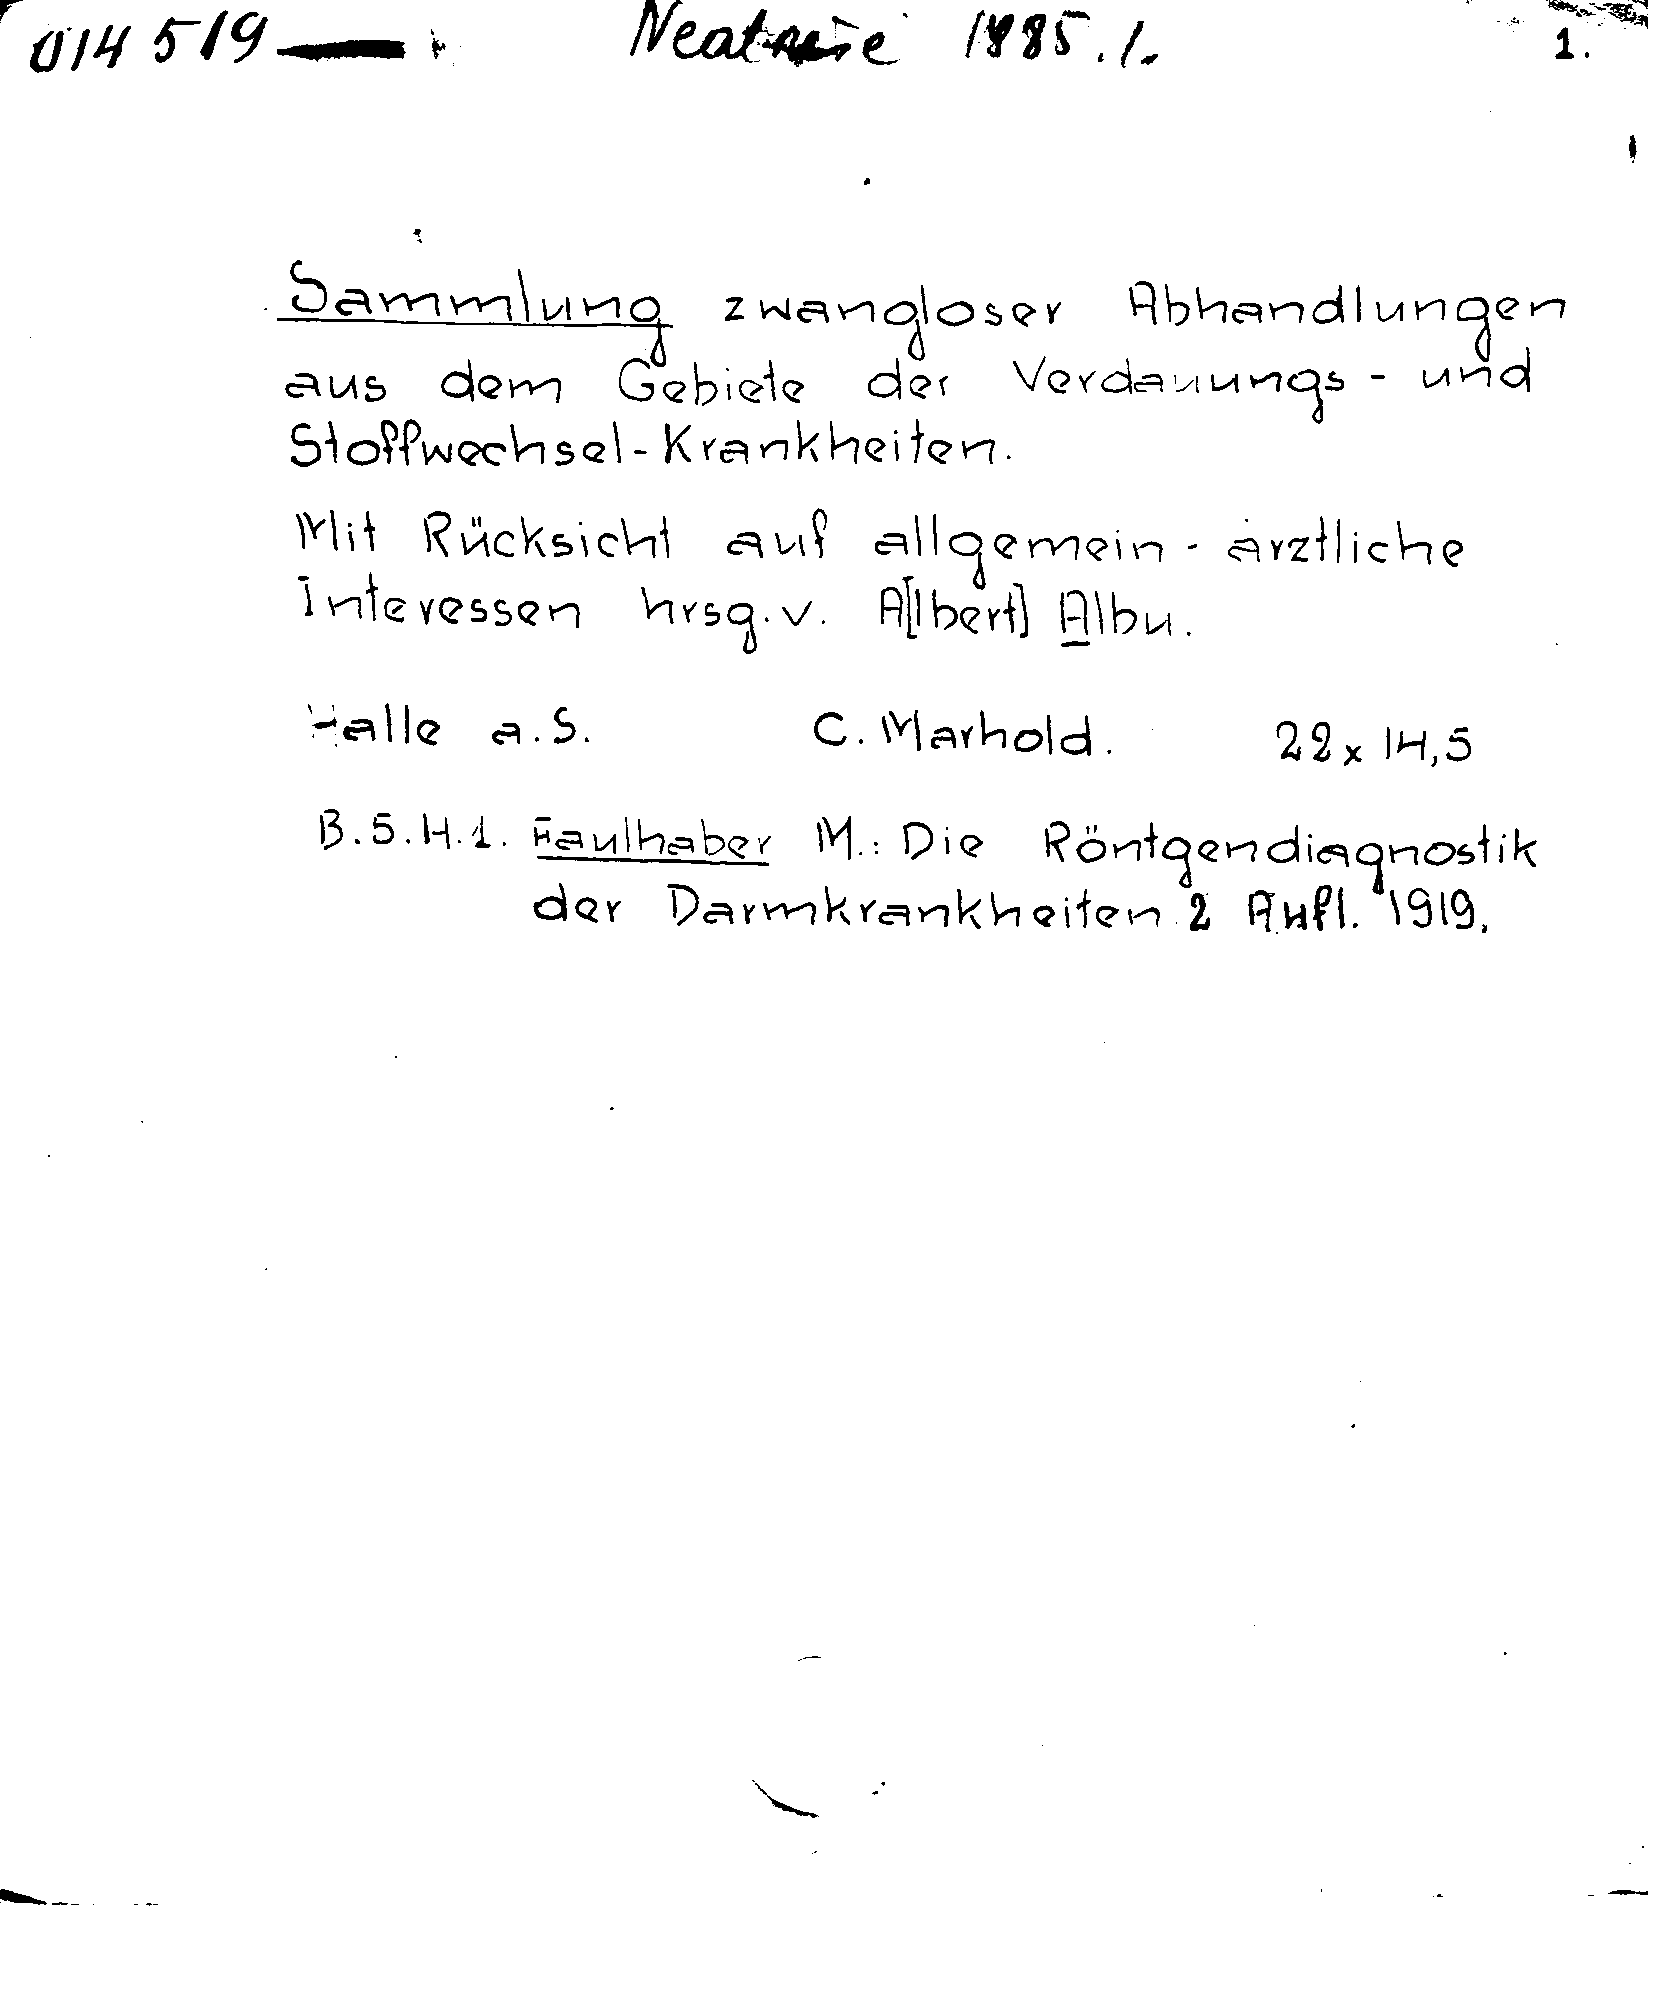 014519 1885.1. 1.
Sammlung zwangloser Abhandlungen
aus dem Gebiete der Verdauungs- und
Stoffwechsel-Krankheiten.
Mit Rücksicht auf allgemein-ärztliche
Interessen hrsg. v. A[lbert] Albu.
Halle a. S. C. Marhold. 22 x 14,5
B.5.H.1. Faulhaber M.: Die Röntgendiagnostik
der Darmkrankheiten 2 Aufl. 1919.